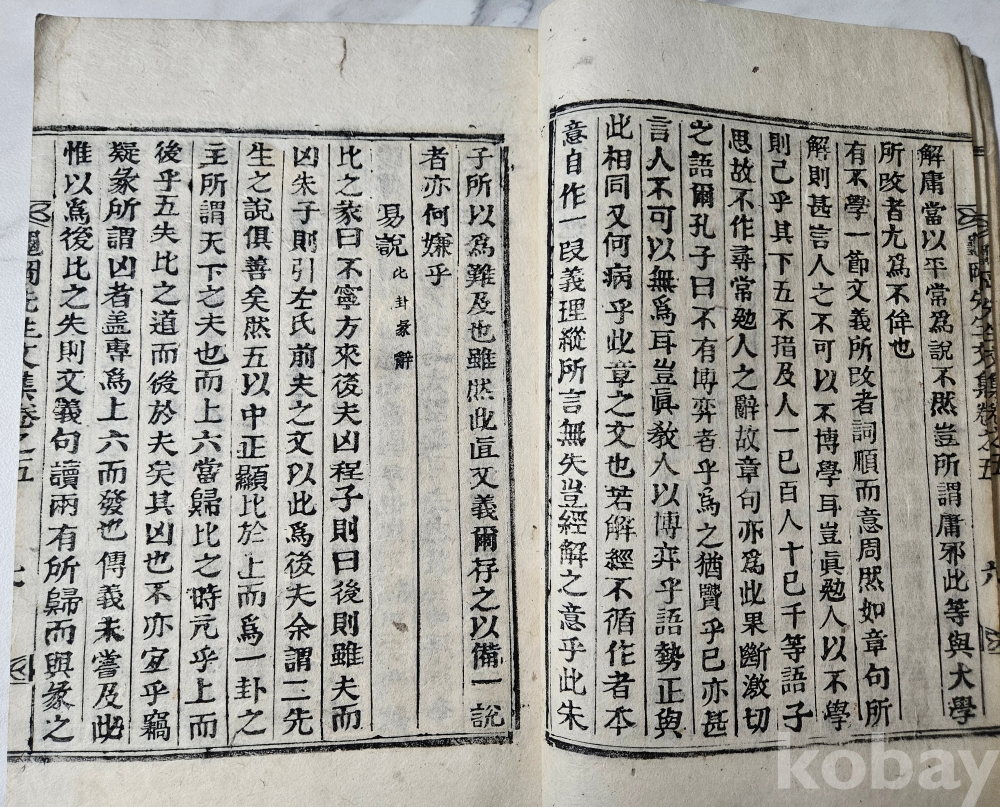 解庸當以平常爲說不然豈所謂庸邪此等與大學
所改者尢爲不侔也
有不學一節文義所改者詞順而意周然如章句所
解則甚言人之不可以不博學耳豈眞勉人以不學
則已乎其下五不措及人一已百人十已千等語子
思故不作尋常勉人之辭故章句亦爲此果斷激切
之語爾孔子曰不有博弈者乎爲之猶賢乎已亦甚
言人不可以無爲耳豈眞教人以博弈乎語勢正與
此相同又何病乎此章之文也若解經不循作者本
意自作一段義理縱所言無失豈經解之意乎此朱
子所以爲難及也雖然此直文義爾存之以備一說
者亦何嫌乎
易說 比卦彖辭
比之彖曰不寧方來後夫凶程子則曰後則雖夫而
凶朱子則引左氏前夫之文以此爲後夫余謂二先
生之說俱善矣然五以中正顯比於上而爲一卦之
主所謂天下之夫也而上六當歸比之時元乎上而
後乎五失比之道而後於夫矣其凶也不亦宜乎竊
疑彖所謂凶者盖專爲上六而發也傳義未嘗及此
惟以爲後比之失則文義句讀兩有所歸而與彖之
先生文集卷之五
六
先生文集卷之五
kobay